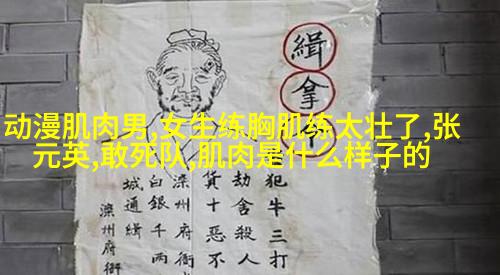 动漫肌肉男,女生练胸肌练太壮了,张
元英,敢死队,肌肉是什么样子的
緝拿
犯牛三打
劫舍殺人
貨十惡不
滦州府衙
白銀千兩
城通緝
滦州府衙